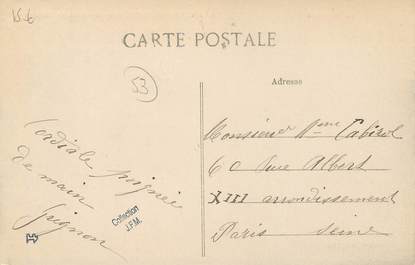 15.6
CARTE POSTALE
53
Adresse
Cordiale poignée
de main
Grignon
Collection
J.F.M.
Monsieur Mme Cabirol
60 Rue Albert
XIII arrondissement
Paris Seine